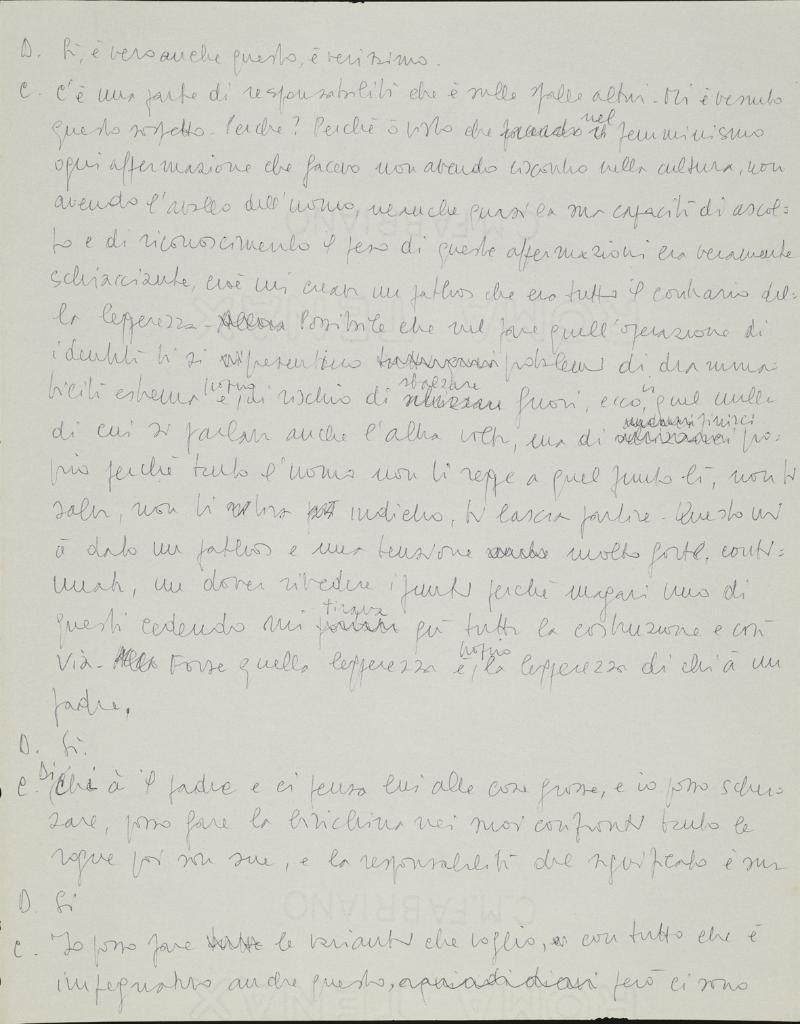 D. Sì, è vero anche questo, è verissimo.
C. C'è una parte di responsabilità che è sulle spalle altrui. Mi è venuto
questo sospetto. Perché? Perché ò visto che facendo il nel femminismo
ogni affermazione che facevo non avendo riscontro nella cultura, non
avendo l'avallo dell'uomo, neanche quasi la sua capacità di ascol=
to e di riconoscimento il peso di queste affermazioni era veramente
schiacciante, cioè mi creava un pathos che era tutto il contrario del=
la leggerezza. Allora Possibile che nel fare quell'operazione di
identità ti si ripresentino problemi di dramma=
ticità estrema, è, proprio di rischio di sbalzare fuori, ecco, in quel nulla
di cui si parlava anche l'altra volta, ma di pro=
prio perché tanto l'uomo non ti regge a quel punto lì, non ti
salva, non ti tira indietro, ti lascia partire. Questo mi
à dato un pathos e una tensione molto forte, conti=
nuata, un dover rivedere i punti perché magari uno di
questi cedendo mi tirava giù tutta la costruzione e così
via. Forse quella leggerezza è, proprio, la leggerezza di chi à un
padre.
D. Sì.
C. Di chi à il padre e ci pensa lui alle cose grosse, e io posso scher
zare, posso fare la birichina nei suoi confronti tanto le
rogne poi son sue, e la responsabilità del significato è sua
D. Sì
C. Io posso fare tutte le varianti che voglio, con tutto che è
impegnativo anche questo, però ci sono